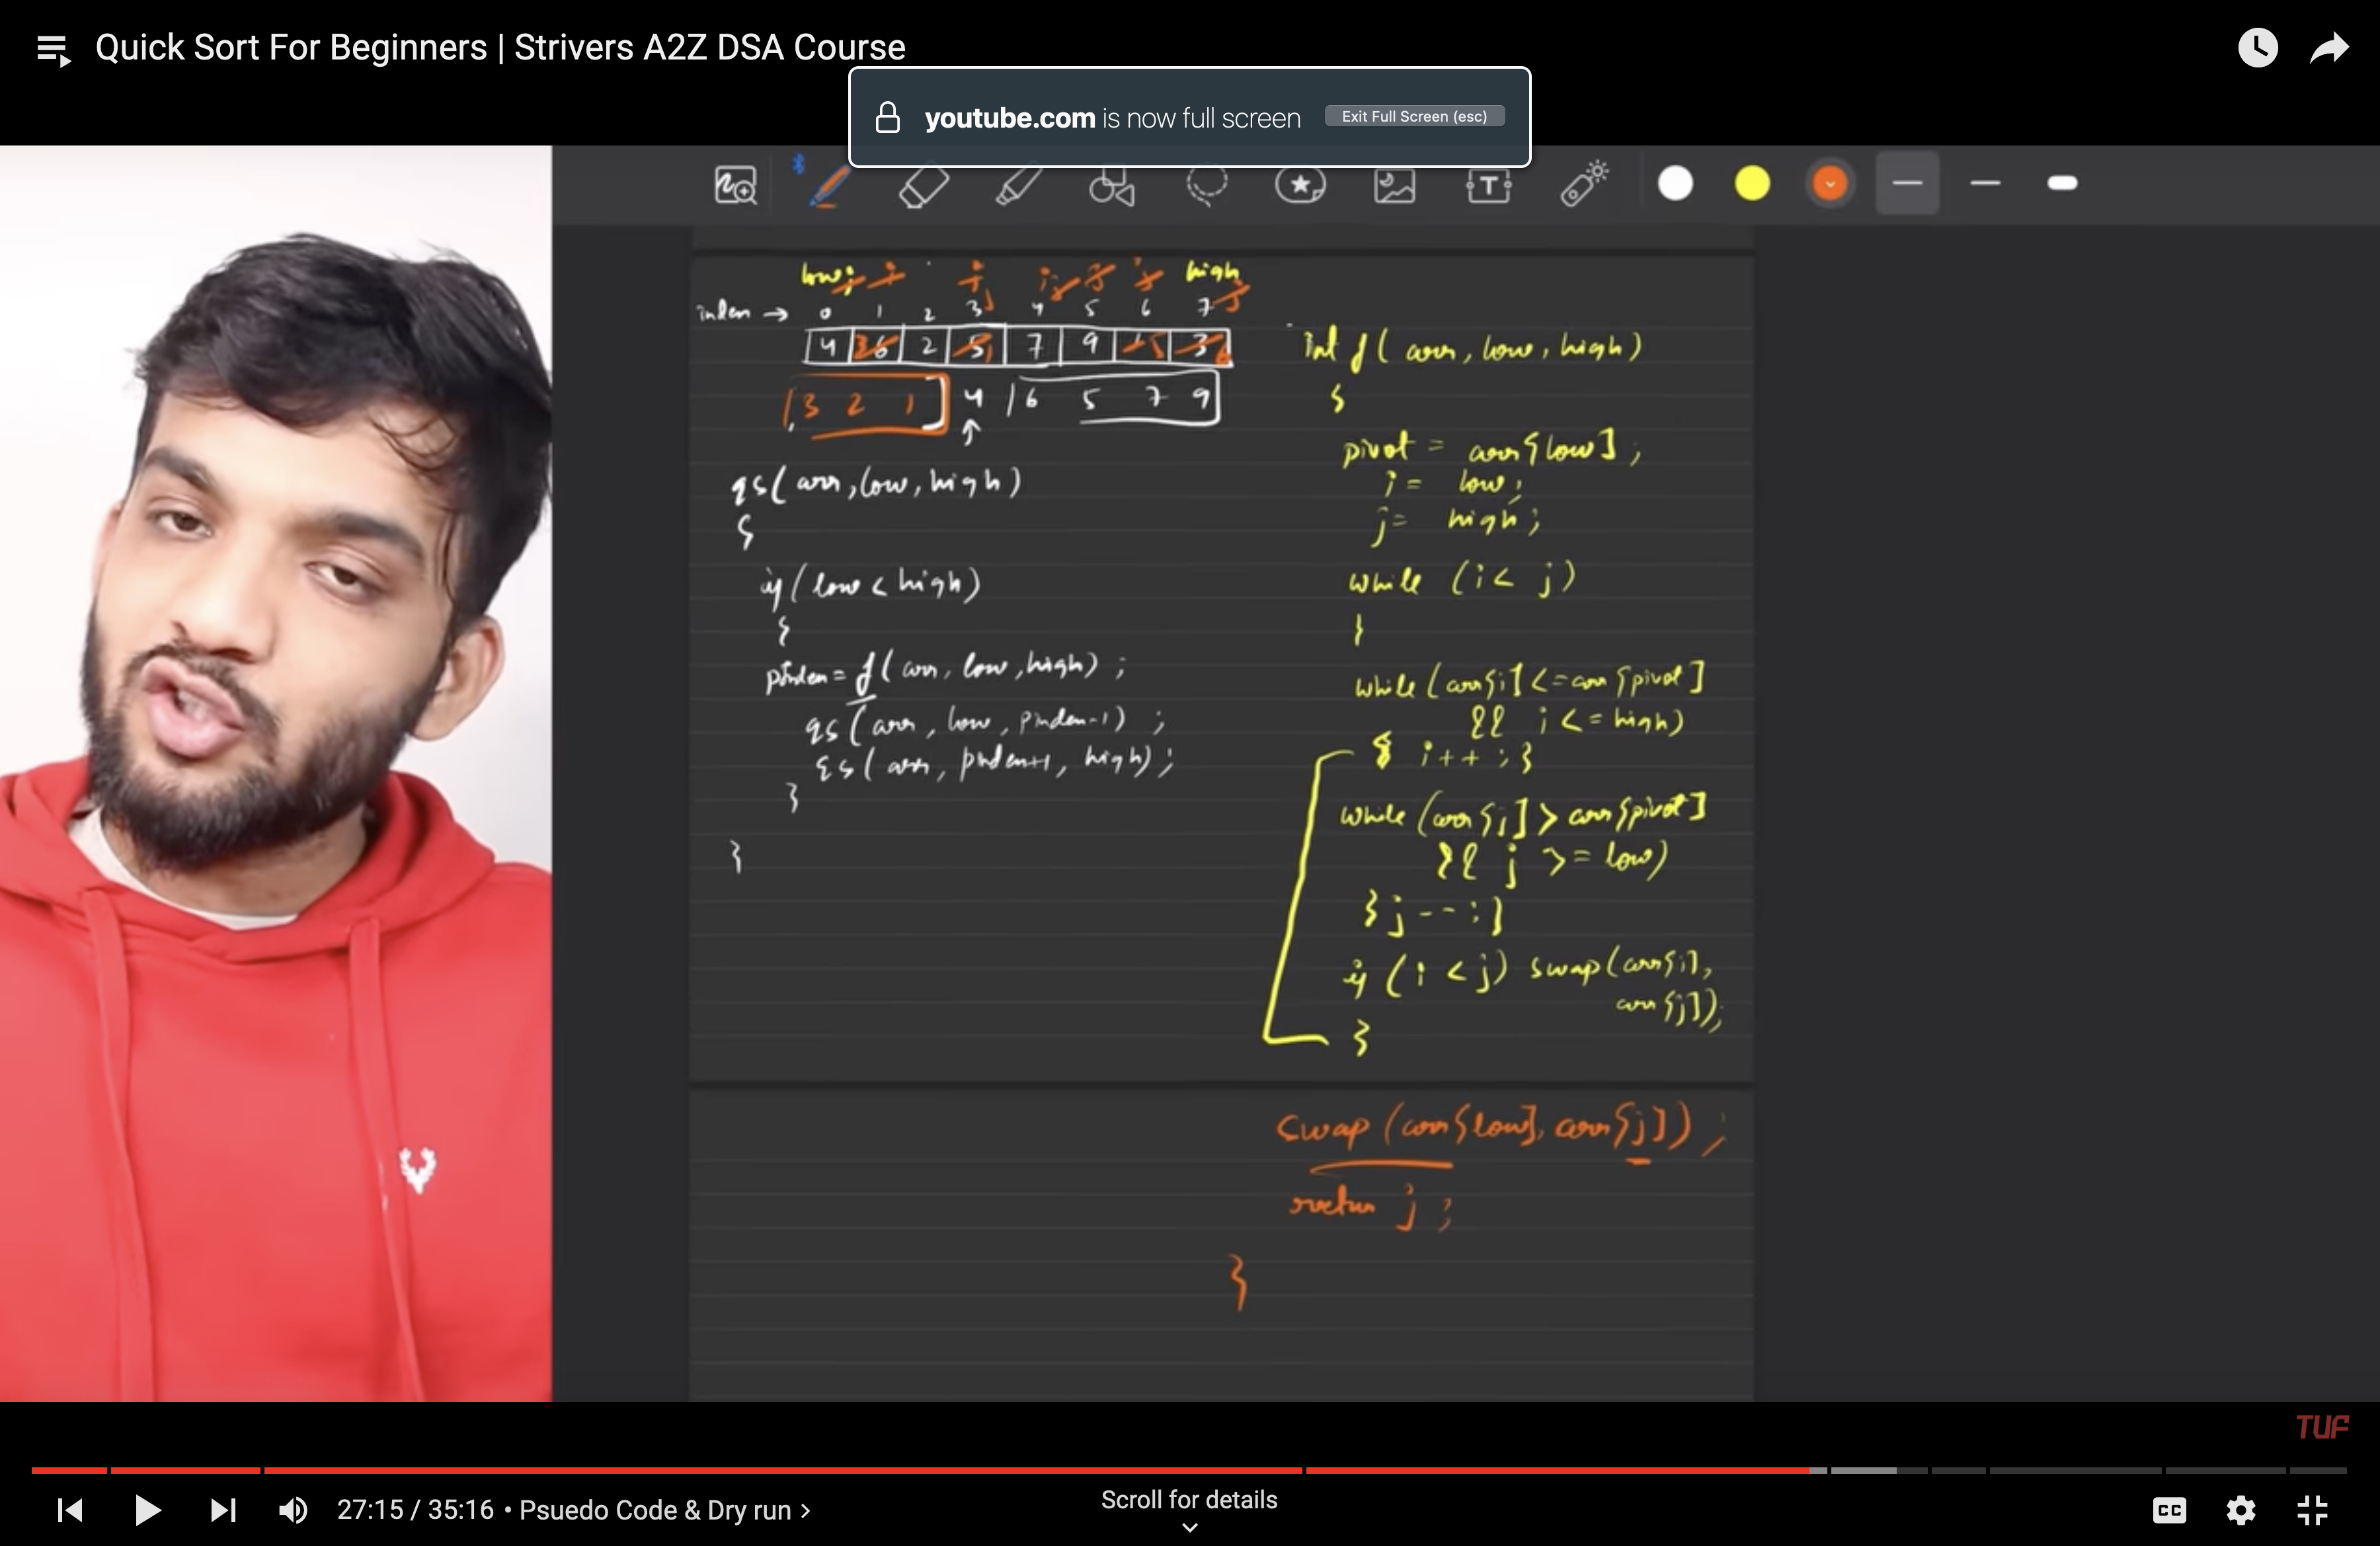 Quick Sort For Beginners | Strivers A2Z DSA Course
youtube.com is now full screen Exit Full Screen (esc)
low i high
index → 0 1 2 3 4 5 6 7
4 6 2 5 7 9 1 3
3 2 1 4 6 5 7 9
qs(arr, low, high)
{
if (low < high)
{
pIndex = f(arr, low, high);
qs(arr, low, pIndex-1);
qs(arr, pIndex+1, high);
}
}
int f(arr, low, high)
{
pivot = arr[low];
i = low;
j = high;
while (i < j)
{
while (arr[i] <= arr[pivot]
&& i <= high)
{ i++; }
while (arr[j] > arr[pivot]
&& j >= low)
{ j--; }
if (i < j) swap(arr[i],
arr[j]);
}
swap(arr[low], arr[j]);
return j;
}
TUF
27:15 / 35:16 • Psuedo Code & Dry run
Scroll for details
CC